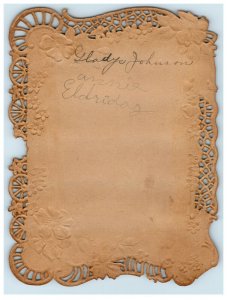 Gladys Johnson
Eldridge